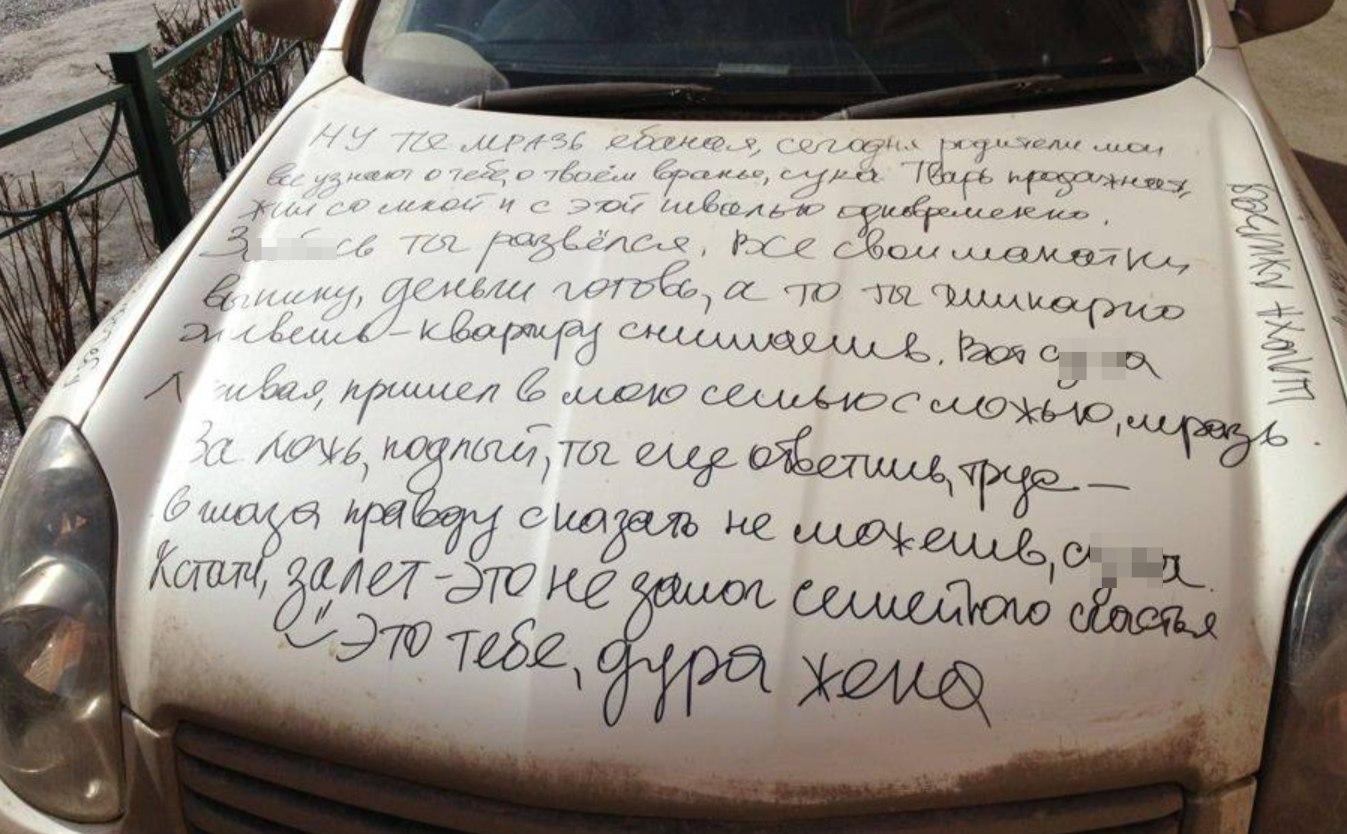 НУ ТЫ МРАЗЬ ебаная, сегодня родители мои
все узнают о тебе, о твоём вранье, сука Тварь продажная,
жил со мной и с этой швалью одновременно.
ты развёлся. Все свои манатки
выкину, деньги готовь, а то ты шикарно
живешь - квартиру снимаешь. Вот
пришел в мою семью с ложью, мразь.
За ложь, подлый, ты еще ответишь, трус —
в глаза правду сказать не можешь,
Кстати, залет - это не залог семейного счастья
Это тебе, дура жена